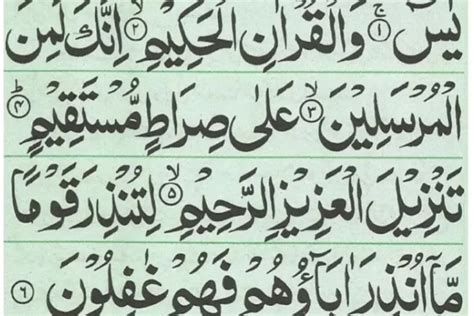 يٰسٓ ۝١ وَالْقُرْاٰنِ الْحَكِيْمِ ۝٢ اِنَّكَ لَمِنَ
الْمُرْسَلِيْنَ ۝٣ عَلٰى صِرَاطٍ مُّسْتَقِيْمٍ ۝٤
تَنْزِيْلَ الْعَزِيْزِ الرَّحِيْمِ ۝٥ لِتُنْذِرَ قَوْمًا
مَّآ اُنْذِرَ اٰبَآؤُهُمْ فَهُمْ غٰفِلُوْنَ ۝٦